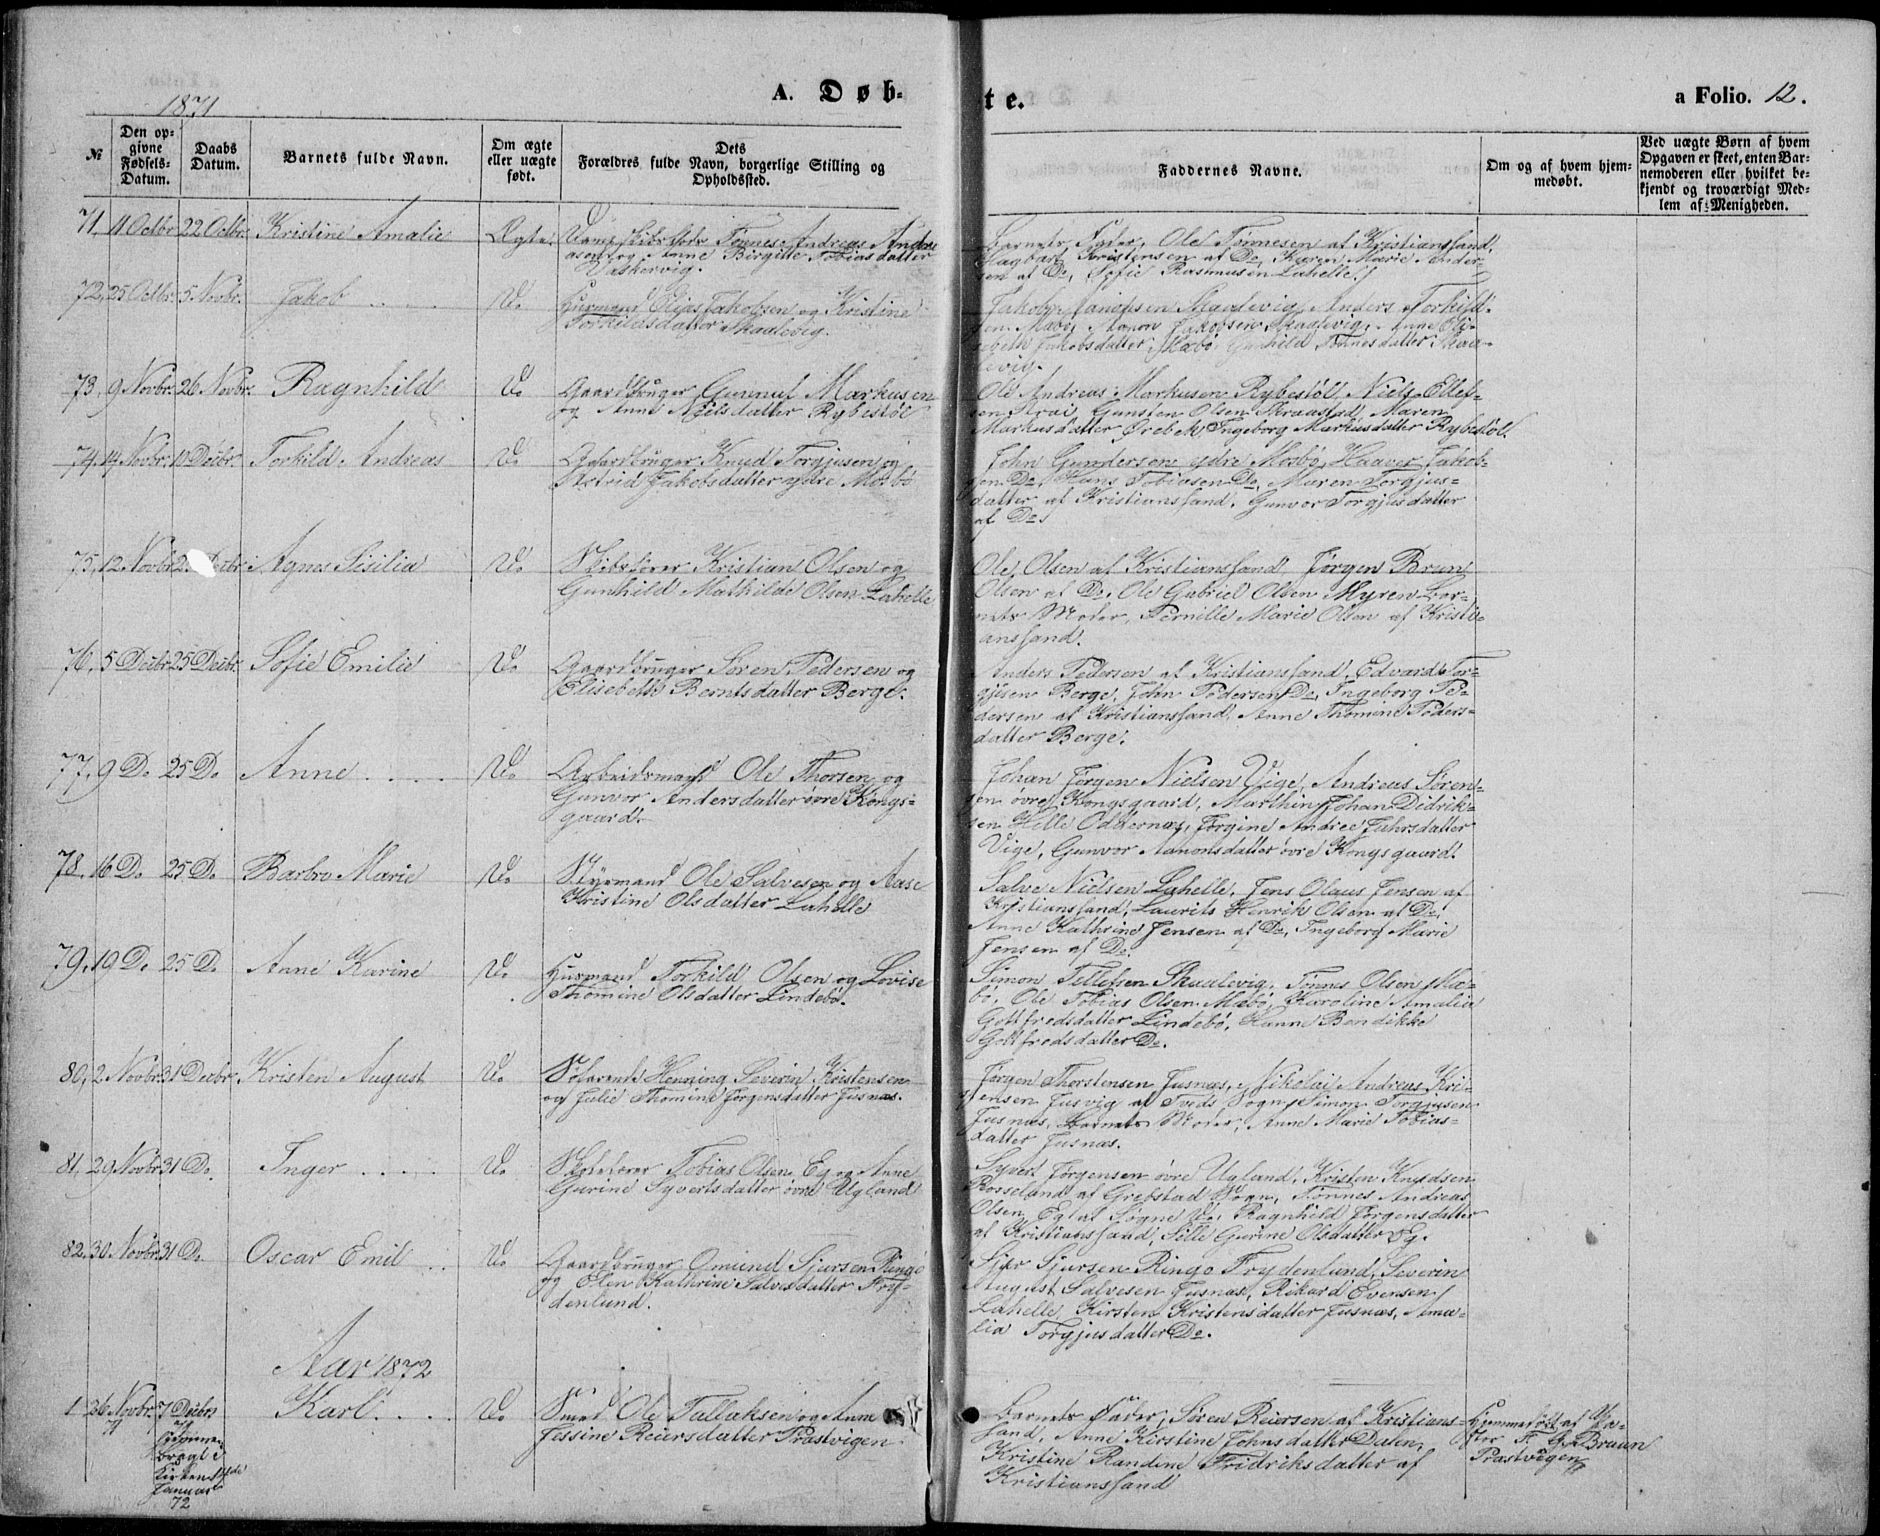 1871
A. Døb-
te.
a Folio. 12.
№
Den op-
givne
Fødsels-
Datum.
Daabs
Datum.
Barnets fulde Navn.
Om ægte
eller uægte
født.
Dets
Forældres fulde Navn, borgerlige Stilling og
Opholdssted.
Faddernes Navne.
Om og af hvem hjem-
medøbt.
Ved uægte Børn af hvem
Opgaven er skeet, enten Bar-
nemoderen eller hvilket be-
kjendt og troværdigt Med-
lem af Menigheden.
71, 11 Octbr 22 Octbr. Kristine Amalie Ægte. Tønnes Andreas Andre
asen og Anne Birgitte Tobiasdatter
Vaskervig.
Barnets Fader, Ole Tønnesen af Kristianssand,
Dagbart Kristensen af Do, Karen Marie Ander-
sen af Do, Sofie Rasmussen Lahelle.
72, 25 Octbr. 5 Novbr. Jakob Do Husmand Elias Jakobsen og Kristine
Torkildsdatter Skaalevig.
Jakob Skaalevig, Anders Torkild-
sen Mæbø, Jakobsen Skaalevig, Anne Eli-
sebeth Jakobsdatter Mæbø, Gunhild Tønnesdatter Skaa-
levig.
73, 9 Novbr. 26 Novbr. Ragnhild Do Gaardbruger Gunnuf Markusen
og Anne Nielsdatter Rybestøl
Ole Andreas Markusen Rybestøl, Niels Ellef-
sen Strai, Gunsten Olsen Straastad, Maren
Markusdatter Ørebek, Ingeborg Markusdatter Rybestøl.
74, 14 Novbr. 10 Decbr. Torkild Andreas Do Gaardbruger Knud Torgjusen og
Astrid Jakobsdatter ydre Mosbø
John Gundersen ydre Mosbø, Haaver Jakob-
sen Do, Hans Tobiasen Do, Maren Torgjus-
datter af Kristianssand, Gunvor Torgjusdatter
af Do.
75, 12 Novbr Decbr Agnes Sisilia Do Skibsfører Kristian Olsen og
Gunhild Mathilde Olsen Lahelle
Ole Olsen af Kristianssand, Jørgen Brun
Olsen af Do, Ole Gabriel Olsen Myren, Bar-
nets Moder, Pernille Marie Olsen af Kristi-
anssand.
76, 5 Decbr 25 Decbr. Sofie Emilie Do Gaardbruger Søren Pedersen og
Elisebeth Berntsdatter Berge.
Anders Pedersen af Kristianssand, Edvard Tor-
gjusen Berge, John Pedersen Do, Ingeborg Pe-
dersen af Kristianssand, Anne Thomine Peders-
datter Berge.
77, 9 D. 25 D. Anne Do Arbeidsmand Ole Thorsen og
Gunvor Andersdatter øvre Kongs-
gaard.
Johan Jørgen Nielsen Vige, Andreas Søren-
sen øvre Kongsgaard, Marthin Johan Didrik-
sen Helle Oddernæs, Jørgine Andrea
Vige, Gunvor Aanonsdatter øvre Kongsgaard.
78, 16 D. 25 D. Barbro Marie Do Styrmand Ole Salvesen og Aase
Kristine Olsdatter Lahelle
Salve Nielsen Lahelle, Jens Olaus Jensen af
Kristianssand, Laurits Henrik Olsen af Do,
Anne Kathrine Jensen af Do, Ingeborg Marie
Jensen af Do.
79, 19 D. 25 D. Anne Karine Do Husmand Torkild Olsen og Lovise
Thomine Olsdatter Lindebø.
Simon Tellefsen Skaalevig, Tønnes Olsen Mæ-
bø, Ole Tobias Olsen Mæbø, Karoline Amalia
Gottfredsdatter Lindebø, Hanne Bendikke
Gottfredsdatter Do.
80, 2 Novbr. 31 Decbr. Kristen August Do Søfarende Henning Severin Kristensen
og Julie Thomine Jørgensdatter Jusnæs.
Jørgen Thorstensen Jusnæs, Nikolai Andreas Kri-
stensen Jusvig af Tveds Sogn, Simon Torgjusen
Jusnæs, Barnets Moder, Anne Marie Tobias-
datter Jusnæs.
81, 29 Novbr 31 D. Inger Do Tobias Olsen Eg og Anne
Gurine Syvertsdatter øvre Ugland
Syvert Jørgensen øvre Ugland, Kristen Knudsen
Rosseland af Grebstad Sogn, Tønnes Andreas
Olsen Eg af Søgne Do, Ragnhild Jørgensdatter
af Kristianssand, Sille Gurine Olsdatter Eg.
82, 30 Novbr. 31 D. Oscar Emil Do Gaardbruger Omund Sjursen Ringo
og Elen Kathrine Salvesdatter Fry-
denlund.
Sjur Sjursen Ringo Frydenlund, Severin
August Salvesen Jusnæs, Rikard Evensen
Lahelle, Kirsten Kristensdatter Jusnæs, Ama-
lia Torgjusdatter Do.
Aar 1872
1 26 Novbr. 71 7 Decbr. 71 Karl Do Smed Ole Tallaksen og Anne
Jessine Reiersdatter Præstvigen
Barnets Fader, Søren Reiersen af Kristians-
sand, Anne Kirstine Johnsdatter Dalen,
Kristine Randine Fridriksdatter af
Kristianssand
Hjemmedøbt af Ka-
F. G. Bruun
Præstvigen
bragt i
Kirken
Januar
72